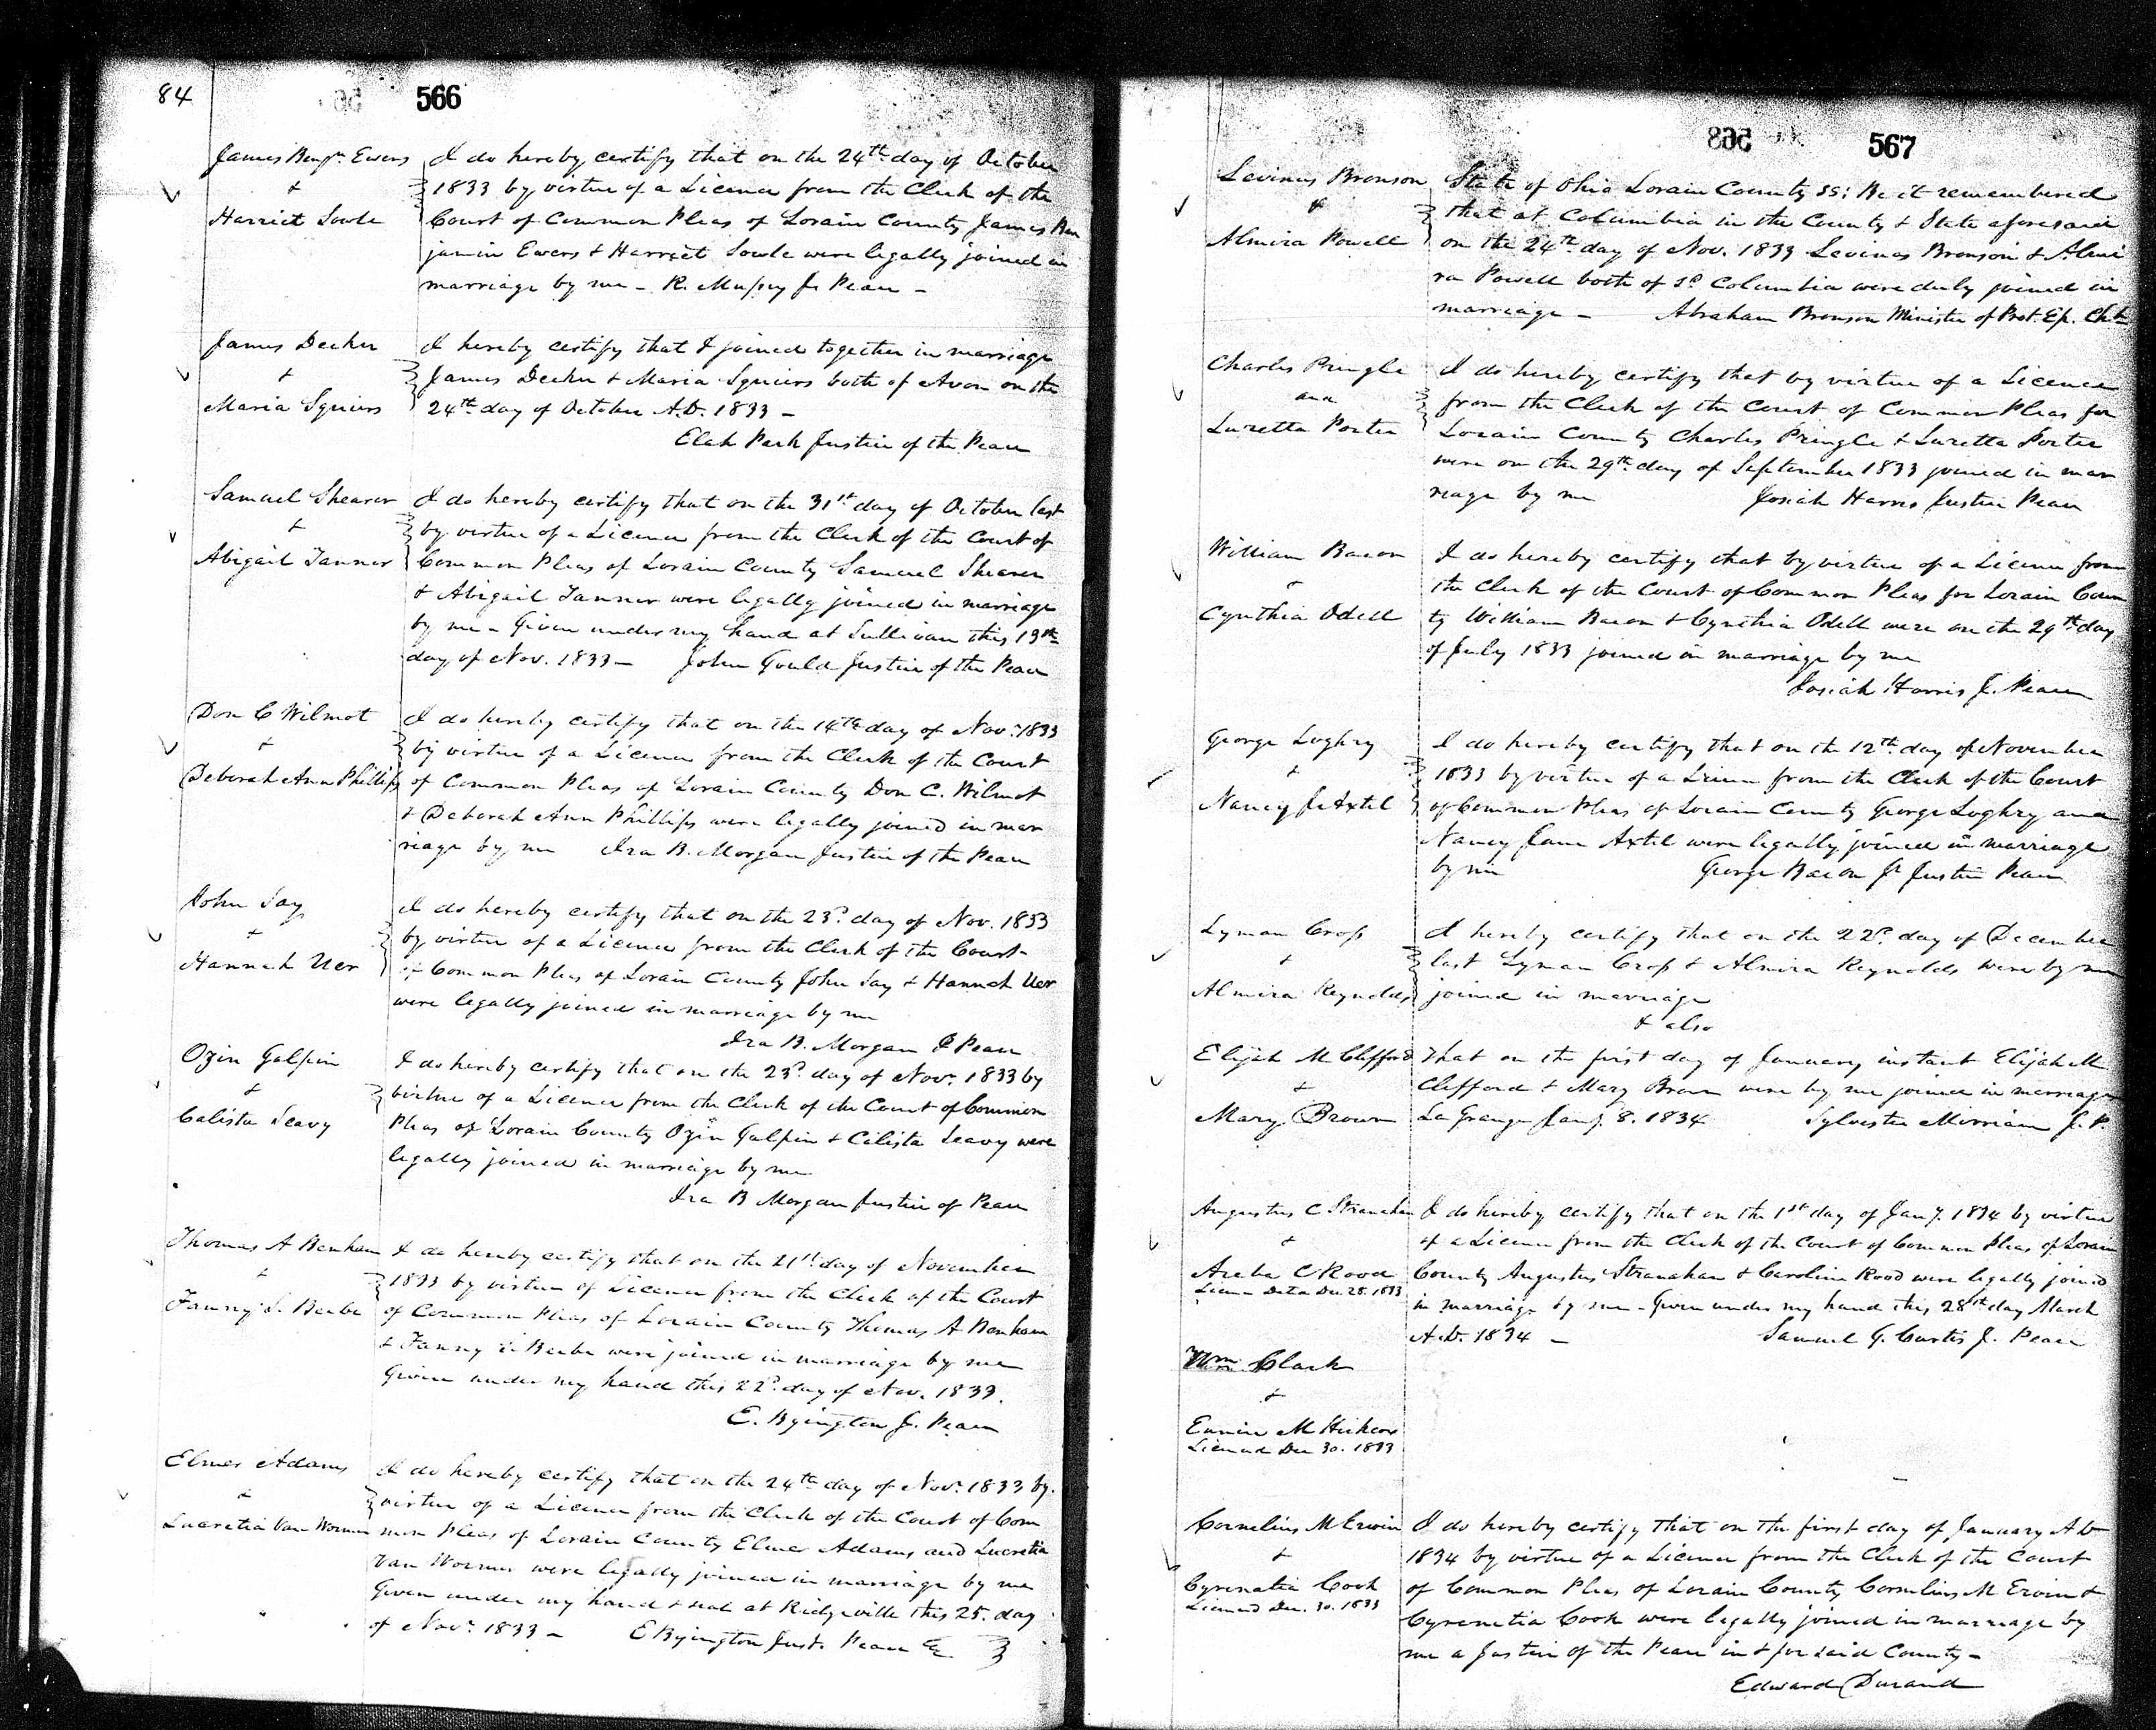 84
566
James Benjn. Ewers
+
Harriet Sowle
I do hereby certify that on the 24th day of October
1833 by virtue of a Licence from the Clerk of the
Court of Common Pleas of Lorain County James Ben
jamin Ewers + Harriet Sowle were legally joined in
marriage by me - R. Mussey J. Peace -
James Decker
+
Maria Squiers
I hereby certify that I joined together in marriage
James Decker + Maria Squiers both of Avon on the
24th day of October A.D. 1833 -
Elah Park Justice of the Peace
Samuel Shearer
+
Abigail Tanner
I do hereby certify that on the 31st day of October last
by virtue of a Licence from the Clerk of the Court of
Common Pleas of Lorain County Samuel Shearer
+ Abigail Tanner were legally joined in marriage
by me - Given under my hand at Sullivan this 13th
day of Nov. 1833 - John Gould Justice of the Peace
Don C Wilmot
+
Deborah Ann Phillips
I do hereby certify that on the 14th day of Nov. 1833
by virtue of a Licence from the Clerk of the Court
of Common Pleas of Lorain County Don C. Wilmot
+ Deborah Ann Phillips were legally joined in mar
riage by me Ira B. Morgan Justice of the Peace
John Jay
+
Hannah Uer
I do hereby certify that on the 23d. day of Nov. 1833
by virtue of a Licence from the Clerk of the Court
of Common Pleas of Lorain County John Jay + Hannah Uer
were legally joined in marriage by me
Ira B. Morgan J Peace
Ozin Galpin
+
Calista Seavy
I do hereby certify that on the 23d. day of Nov. 1833 by
virtue of a Licence from the Clerk of the Court of Common
Pleas of Lorain County Ozin Galpin + Calista Seavy were
legally joined in marriage by me
Ira B Morgan Justice of Peace
Thomas A Benham
+
Fanny S. Beebe
I do hereby certify that on the 21st day of November
1833 by virtue of Licence from the Clerk of the Court
of Common Pleas of Lorain County Thomas A Benham
+ Fanny S Beebe were joined in marriage by me
Given under my hand this 22d. day of Nov. 1833.
E. Byington J. Peace
Elmer Adams
+
Lucretia Van Wormer
I do hereby certify that on the 24th day of Nov. 1833 by
virtue of a Licence from the Clerk of the Court of Com
mon Pleas of Lorain County Elmer Adams and Lucretia
Van Wormer were legally joined in marriage by me
Given under my hand + seal at Ridgeville this 25. day
of Nov. 1833 - E Byington Just. Peace &c
567
Levinus Bronson
+
Almira Powell
State of Ohio Lorain County ss: Be it remembered
that at Columbia in the County + State aforesaid
on the 24th day of Nov. 1833 Levinus Bronson + Almi
ra Powell both of sd Columbia were duly joined in
marriage - Abraham Bronson Minister of Prot. Ep. Chh
Charles Pringle
and
Luretta Porter
I do hereby certify that by virtue of a Licence
from the Clerk of the Court of Common Pleas for
Lorain County Charles Pringle + Luretta Porter
were on the 29th day of September 1833 joined in mar
riage by me Josiah Harris Justice Peace
William Bacon
+
Cynthia Odell
I do hereby certify that by virtue of a Licence from
the Clerk of the Court of Common Pleas for Lorain Coun
ty William Bacon + Cynthia Odell were on the 29th day
of July 1833 joined in marriage by me
Josiah Harris J. Peace
George Loghry
+
Nancy J. Axtel
I do hereby certify that on the 12th day of November
1833 by virtue of a Licence from the Clerk of the Court
of Common Pleas of Lorain County George Loghry and
Nancy Jane Axtel were legally joined in marriage
by me George Bacon Jr Justice Peace
Lyman Cross
+
Almira Reynolds
I hereby certify that on the 22d. day of December
last Lyman Cross + Almira Reynolds were by me
joined in marriage
+ also
Elijah M Clifford
+
Mary Brown
That on the first day of January instant Elijah M
Clifford + Mary Brown were by me joined in marriage
LaGrange Jany. 8. 1834 Sylvester Merriam J. P.
Augustus C Stranahan
+
Areba C Rood
Licen Date Dec 28. 1833
I do hereby certify that on the 1st day of Jany. 1834 by virtue
of a Licence from the Clerk of the Court of Common Pleas of Lorain
County Augustus Stranahan + Caroline Rood were legally joined
in marriage by me - Given under my hand this 28th day March
A.D. 1834 - Samuel G. Curtis J. Peace
Wm. Clark
+
Eunice M Hickox
Licensed Dec 30. 1833
Cornelius M Erwin
+
Cyrenatia Cook
Licensed Dec. 30. 1833
I do hereby certify that on the first day of January A D
1834 by virtue of a Licence from the Clerk of the Court
of Common Pleas of Lorain County Cornelius M Erwin +
Cyrenetia Cook were legally joined in marriage by
me a Justice of the Peace in + for said County -
Edward Durand